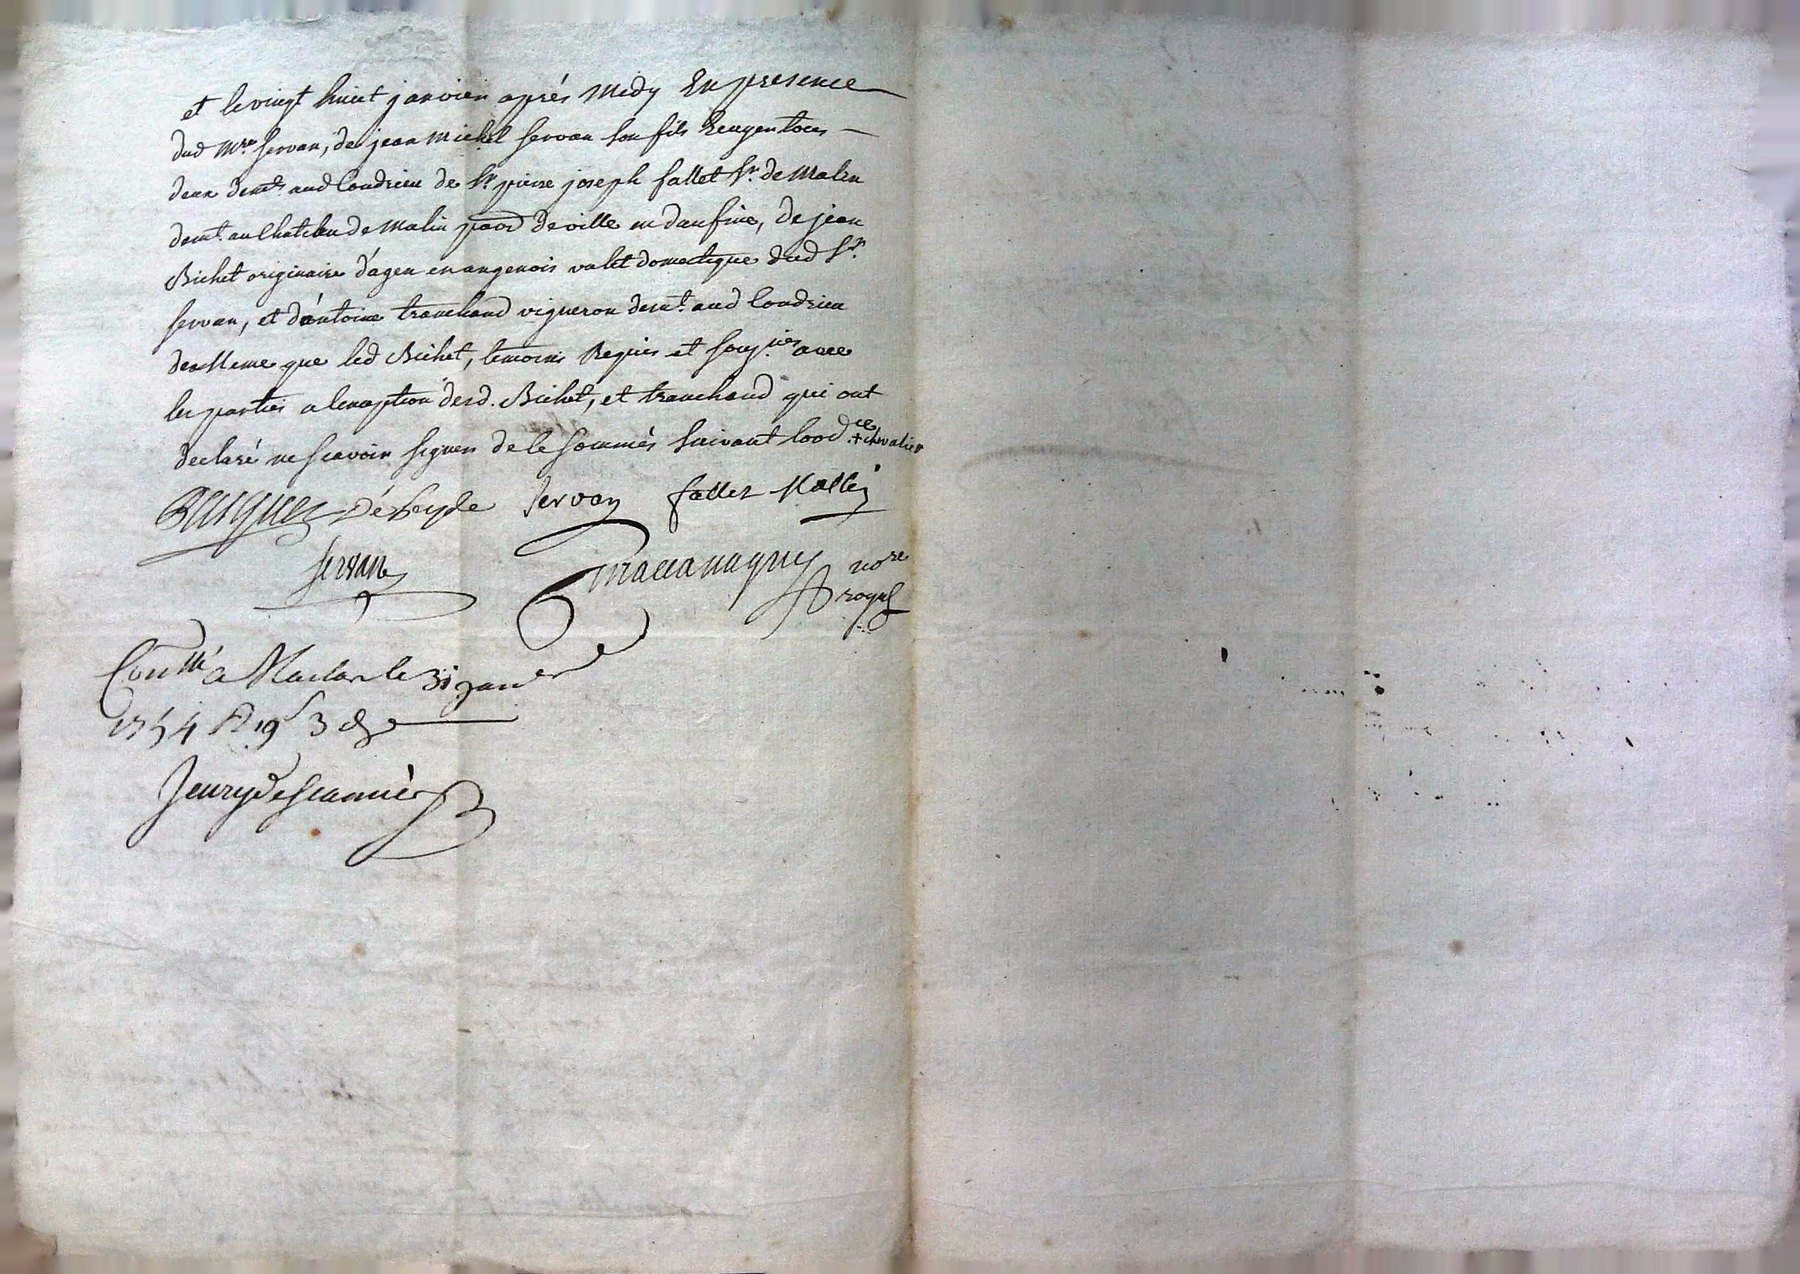 et le vingt huict janvier après Midy En presence
dud Mre servan, de jean michel servan son fils tous
deux demt aud Condrieu de Sr pierre joseph fallet Sr. de Malin
demt. au Chateau de Malin en daufine, de jean
Bichet originaire d'agen en angenois valet domectique dud Sr.
servan, et d'antoine tranchand vigneron demt. aud Condrieu
de Meme que led Bichet, temoins Requis et avec
les parties a lexception desd. Bichet, et tranchand qui ont
declaré ne scavoir signer de ce sommés suivant lord ce + chevalier
servan fallet Mallin
servan nore
royal
Conlle a Maclas le 31 janer
1754 19s 3 d